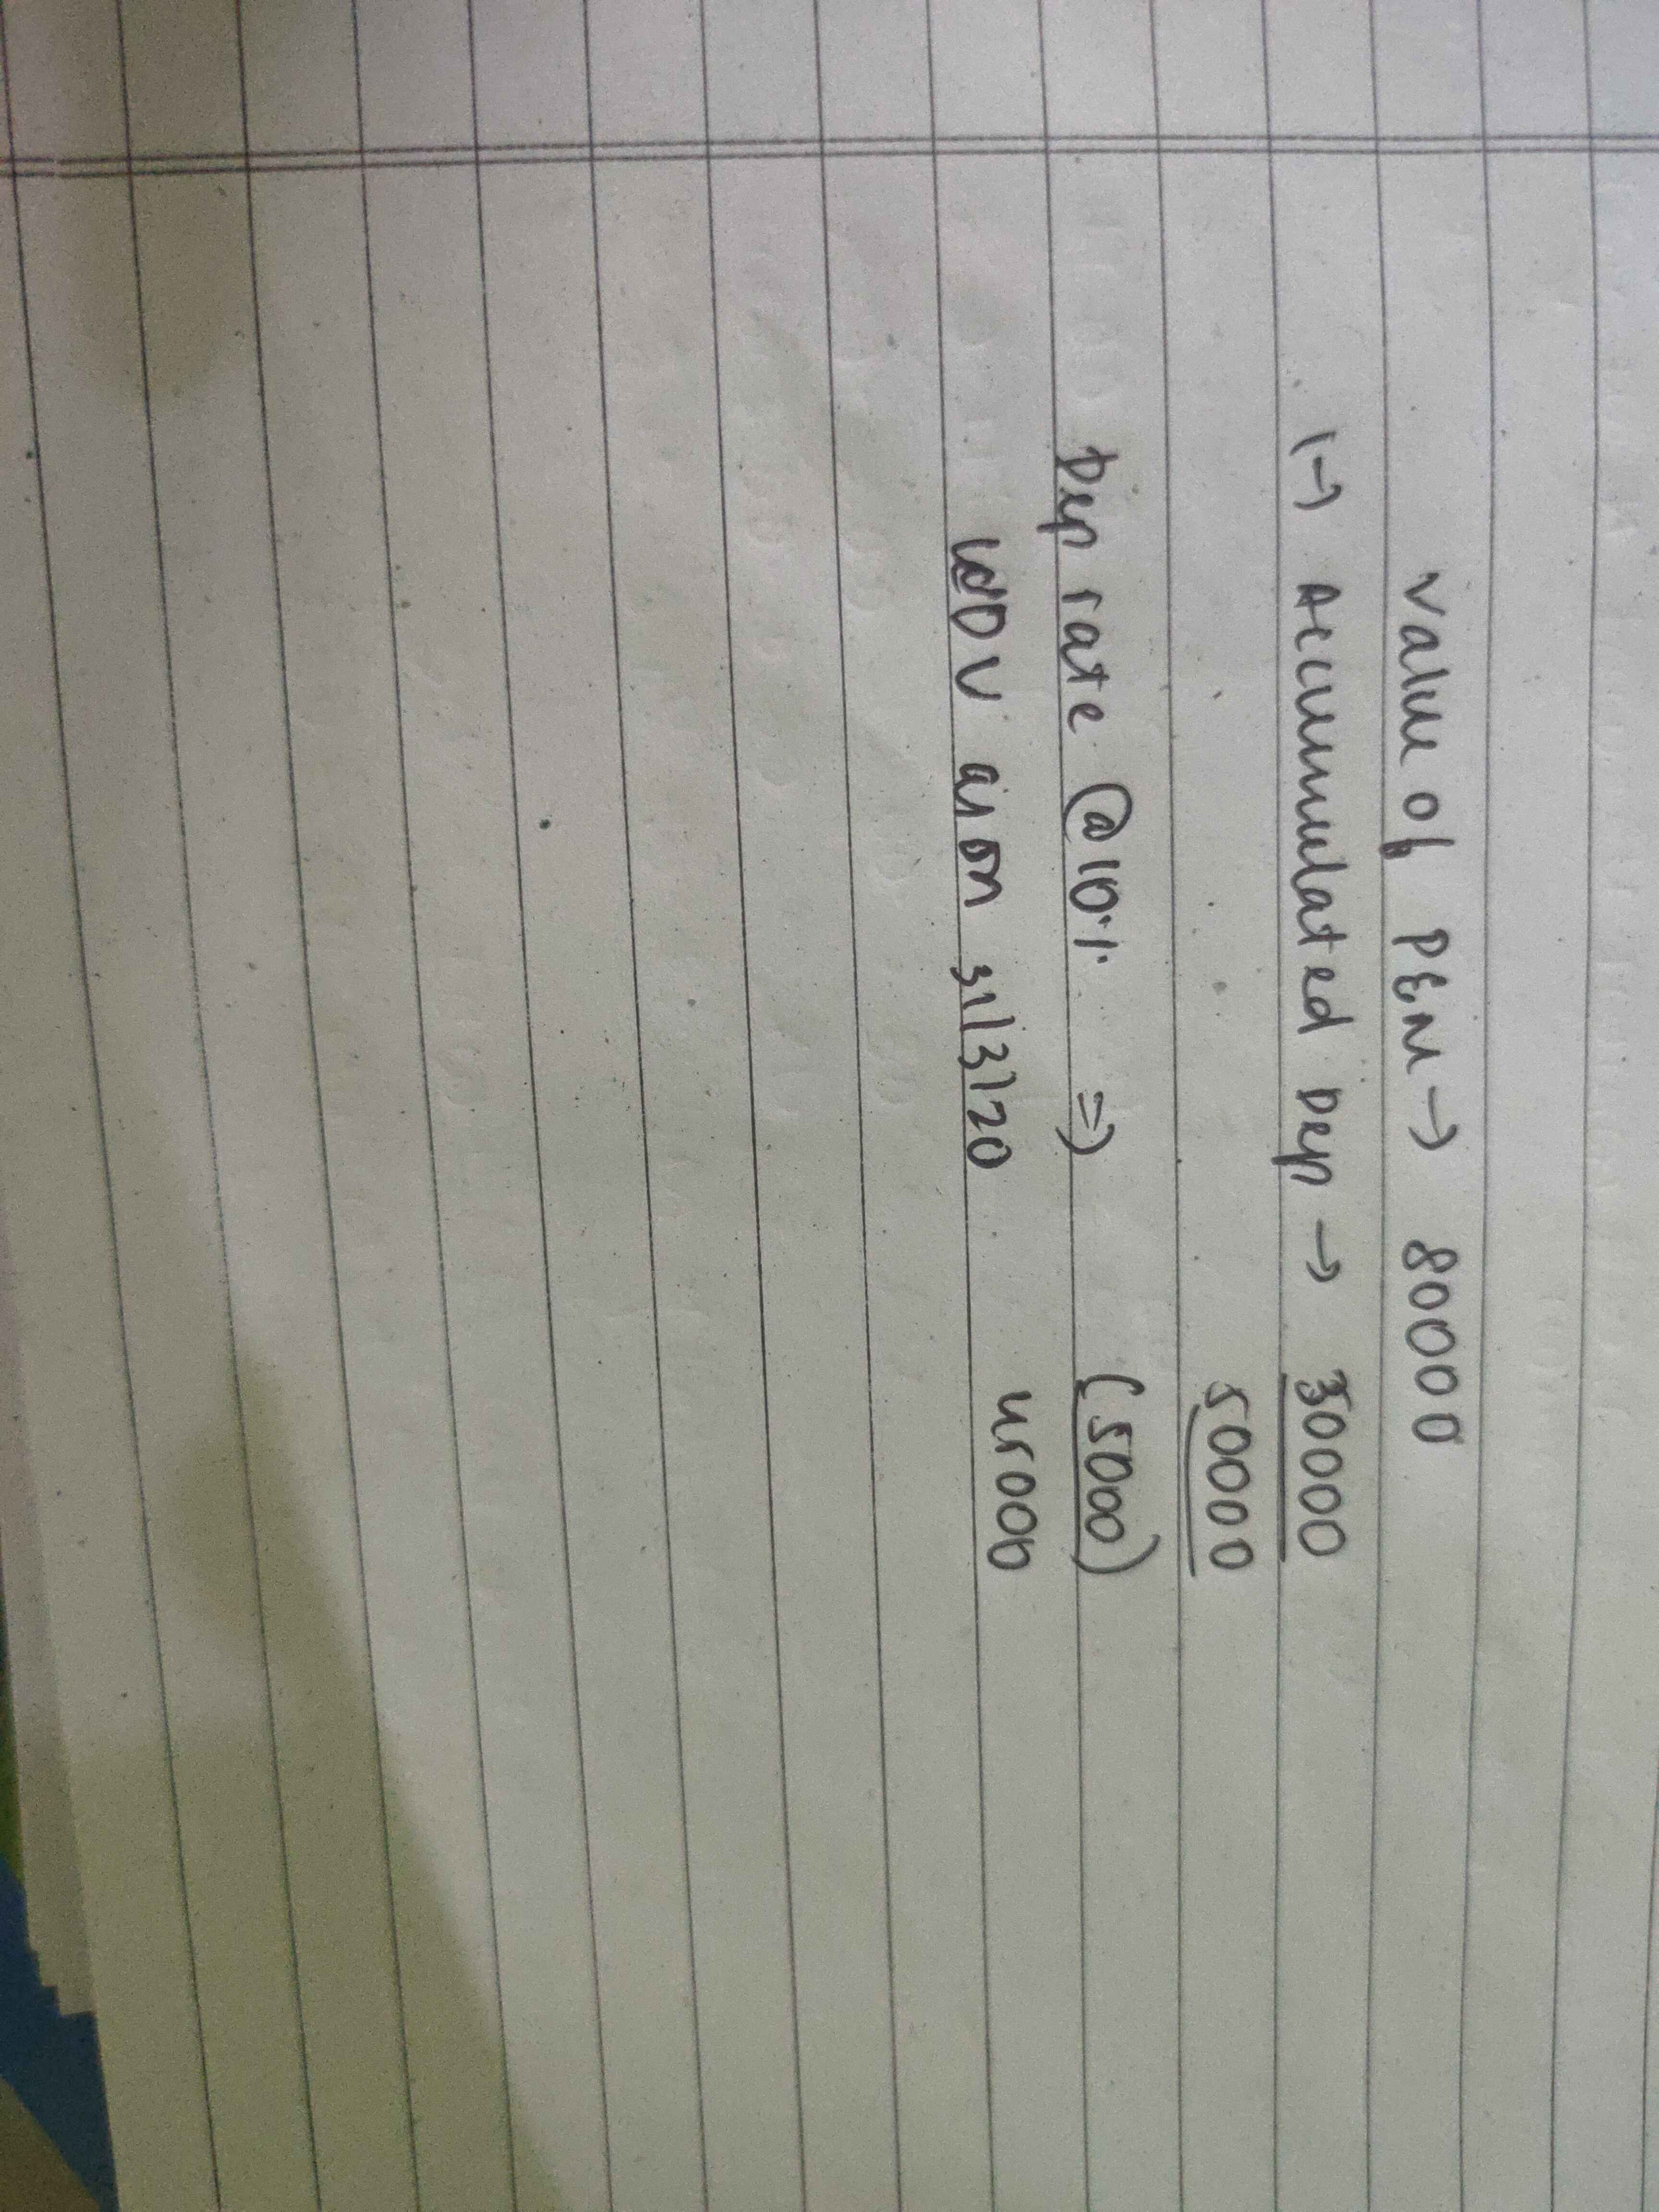 Value of PEM → 80000
(-) Accumulated Dep → 30000
50000
Dep rate @10% ⇒ (5000)
WDV as on 31/3/20 45000